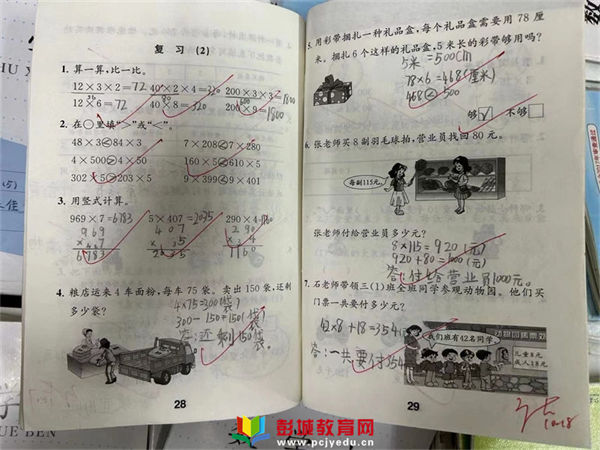 复 习 (2)
1. 算一算，比一比。
12×3×2=72 40×2×4=320 200×3×3=1800
36
12×6=72 40×8=320 200×9=1800
2. 在○里填“>”或“<”。
48×3<84×3 7×208<7×280
4×500>4×50 160×5<610×5
302×5>203×5 9×399<9×401
3. 用竖式计算。
969×7=6783 5×407=2035 290×4=1160
4. 粮店运来 4 车面粉，每车 75 袋。卖出 150 袋，还剩
多少袋？
4×75=300(袋)
300-150=150(袋)
答:还剩150袋。
28
5. 用彩带捆扎一种礼品盒，每个礼品盒需要用 78 厘
米。捆扎 6 个这样的礼品盒，5 米长的彩带够用吗？
5米=500cm
78×6=468(厘米)
468<500
够 ✓ 不够
6. 张老师买 8 副羽毛球拍，营业员找回 80 元。
每副115元。
张老师付给营业员多少元？
8×115=920(元)
920+80=1000(元)
答:付给营业员1000元。
7. 石老师带领三(1)班全班同学参观动物园。他们买
门票一共要付多少元？
42×8+18=354
答:一共要付354
我们班有42名同学
动物园售票处
儿童8元
成人18元
29
10.18
彭城教育网
www.pcjyedu.cn